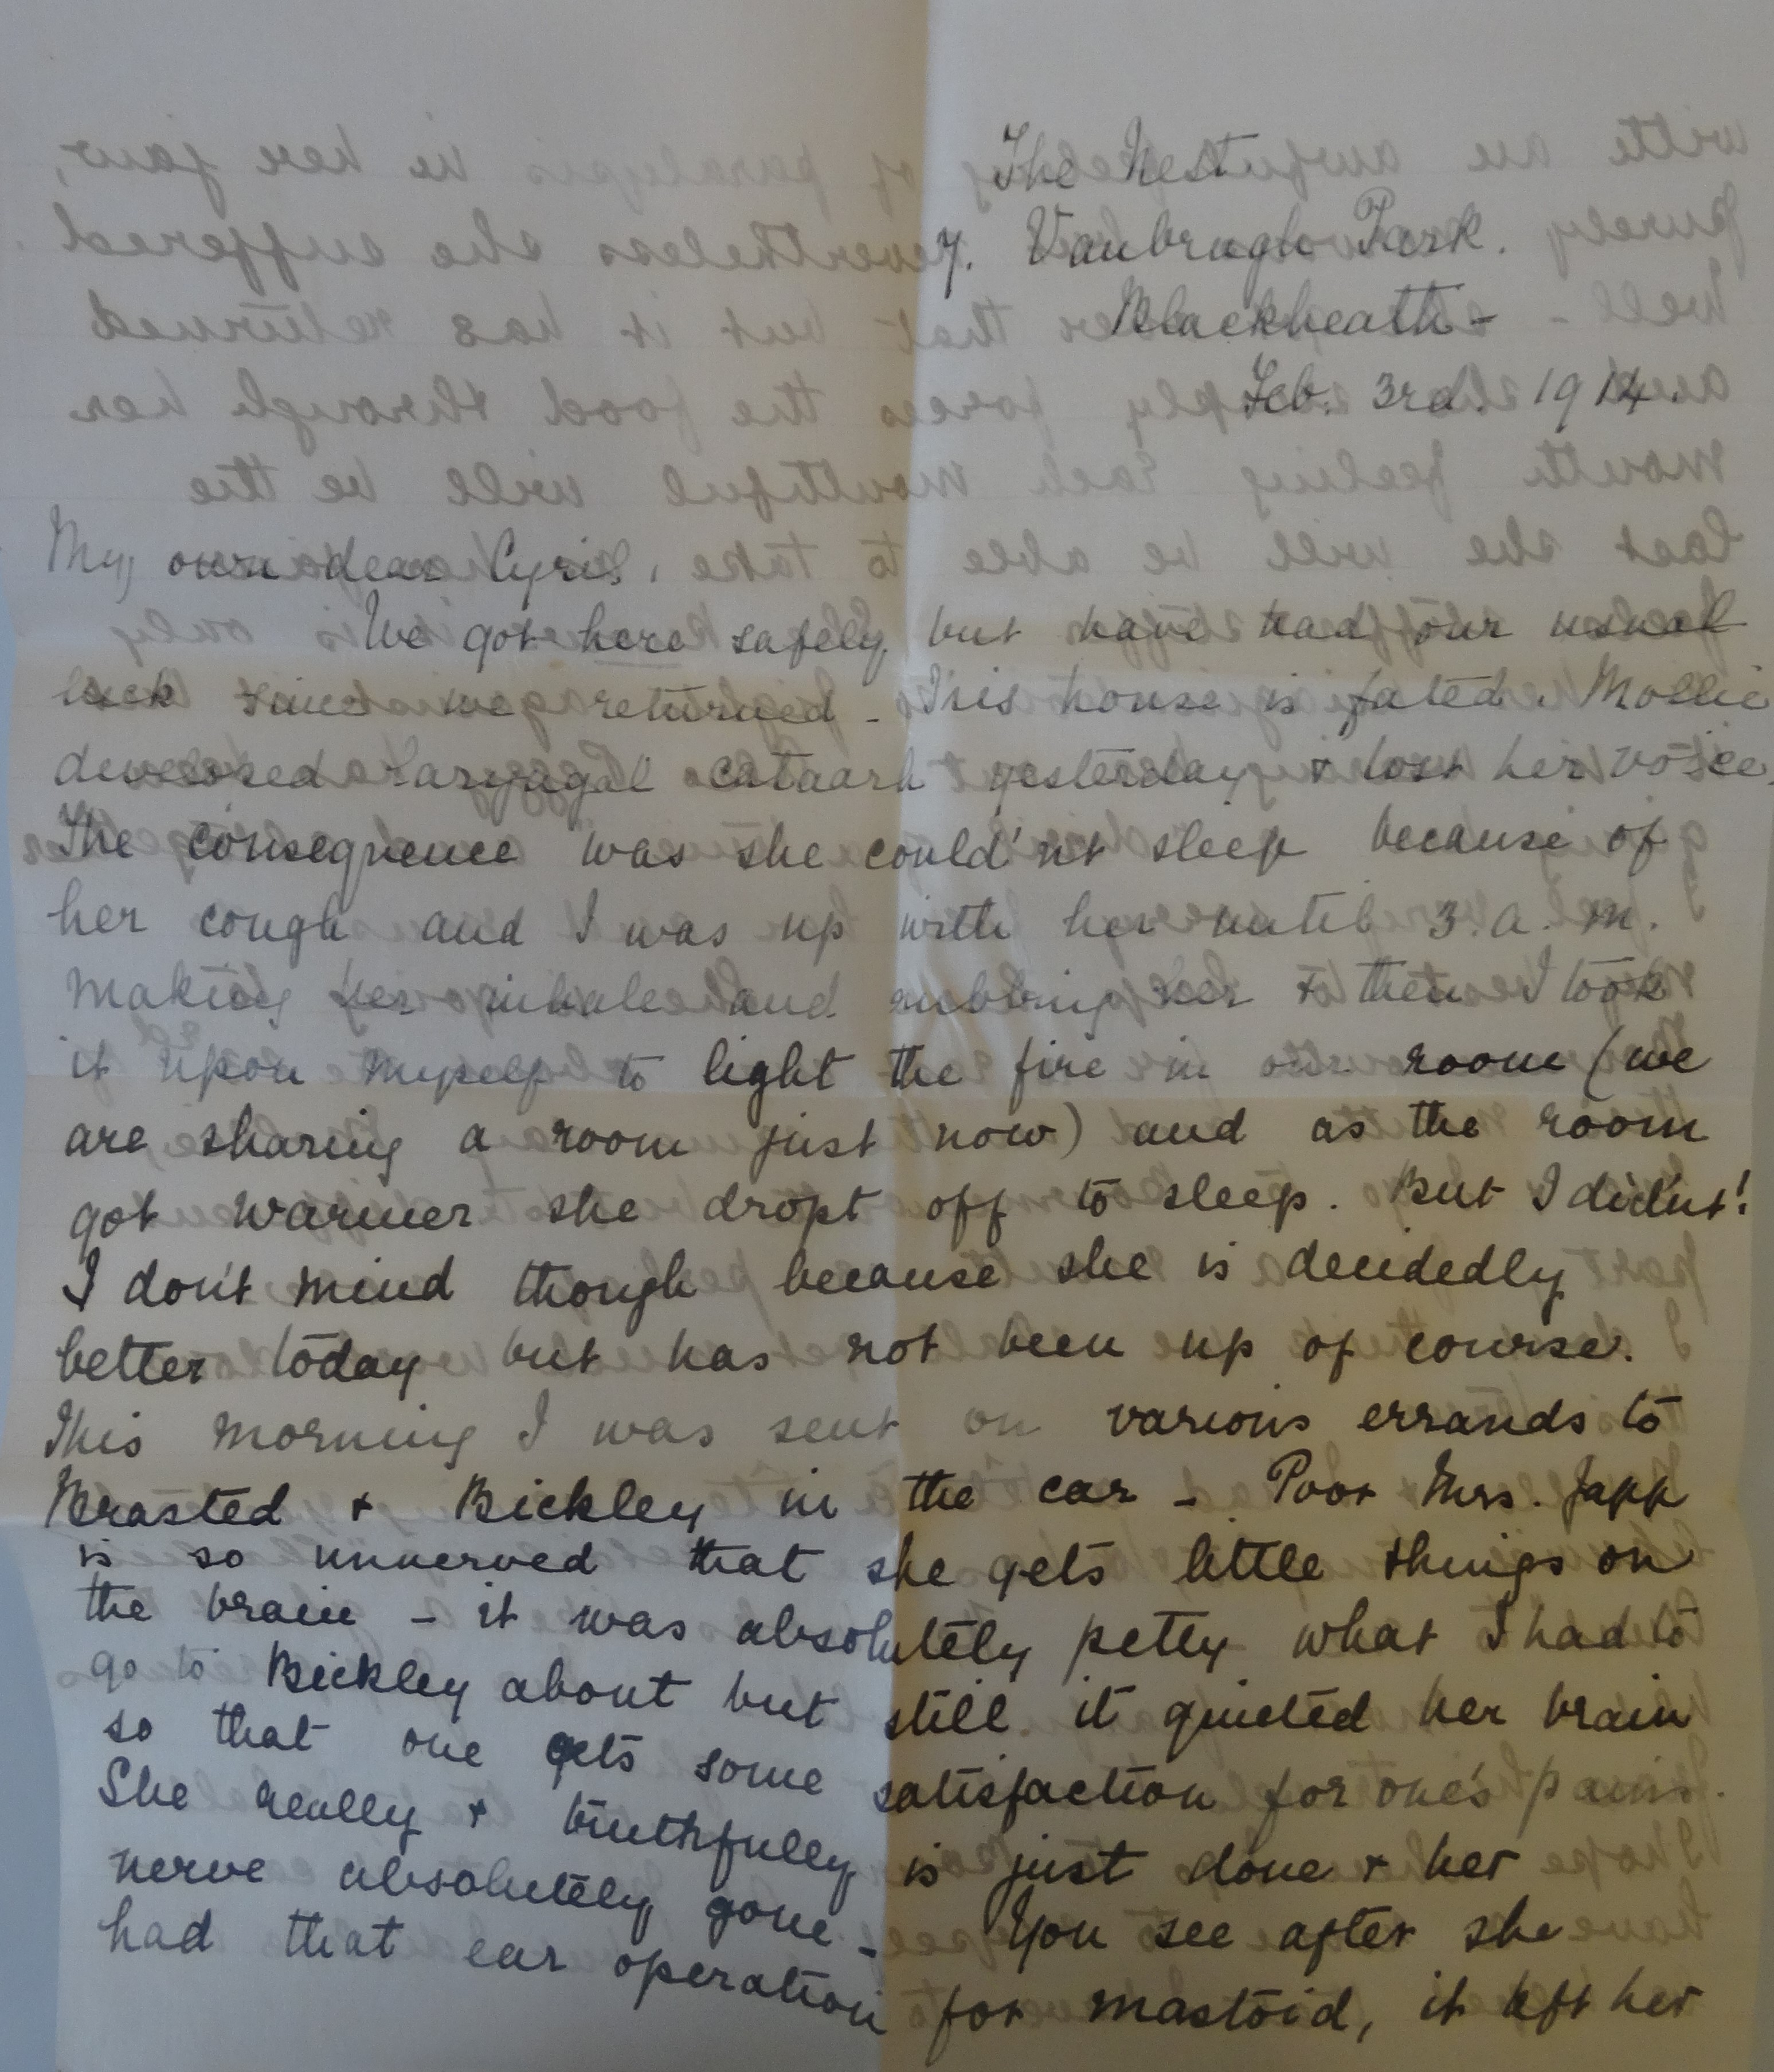 The Nest
7. Vanbrugh Park.
Blackheath -
Feb. 3rd. 1914.
My own dear Cyril,
We got here safely but have had our usual
luck since we returned - This house is fated. Mollie
developed laryngal cataarh yesterday & lost her voice.
The consequence was she could'nt sleep because of
her cough and I was up with her until 3. a. m.
making her inhale and rubbing her & then I took
it upon myself to light the fire in our room (we
are sharing a room just now) and as the room
got warmer she dropt off to sleep. But I did'nt!
I don't mind though because she is decidedly
better today but has not been up of course.
This morning I was sent on various errands to
Brasted & Bickley in the car - Poor Mrs. Japp
is so unnerved that she gets little things on
the brain - it was absolutely petty what I had to
go to Bickley about but still it quieted her brain
so that one gets some satisfaction for one's pains.
She really & truthfully is just done & her
nerve absolutely gone - You see after she
had that ear operation for mastoid, it left her